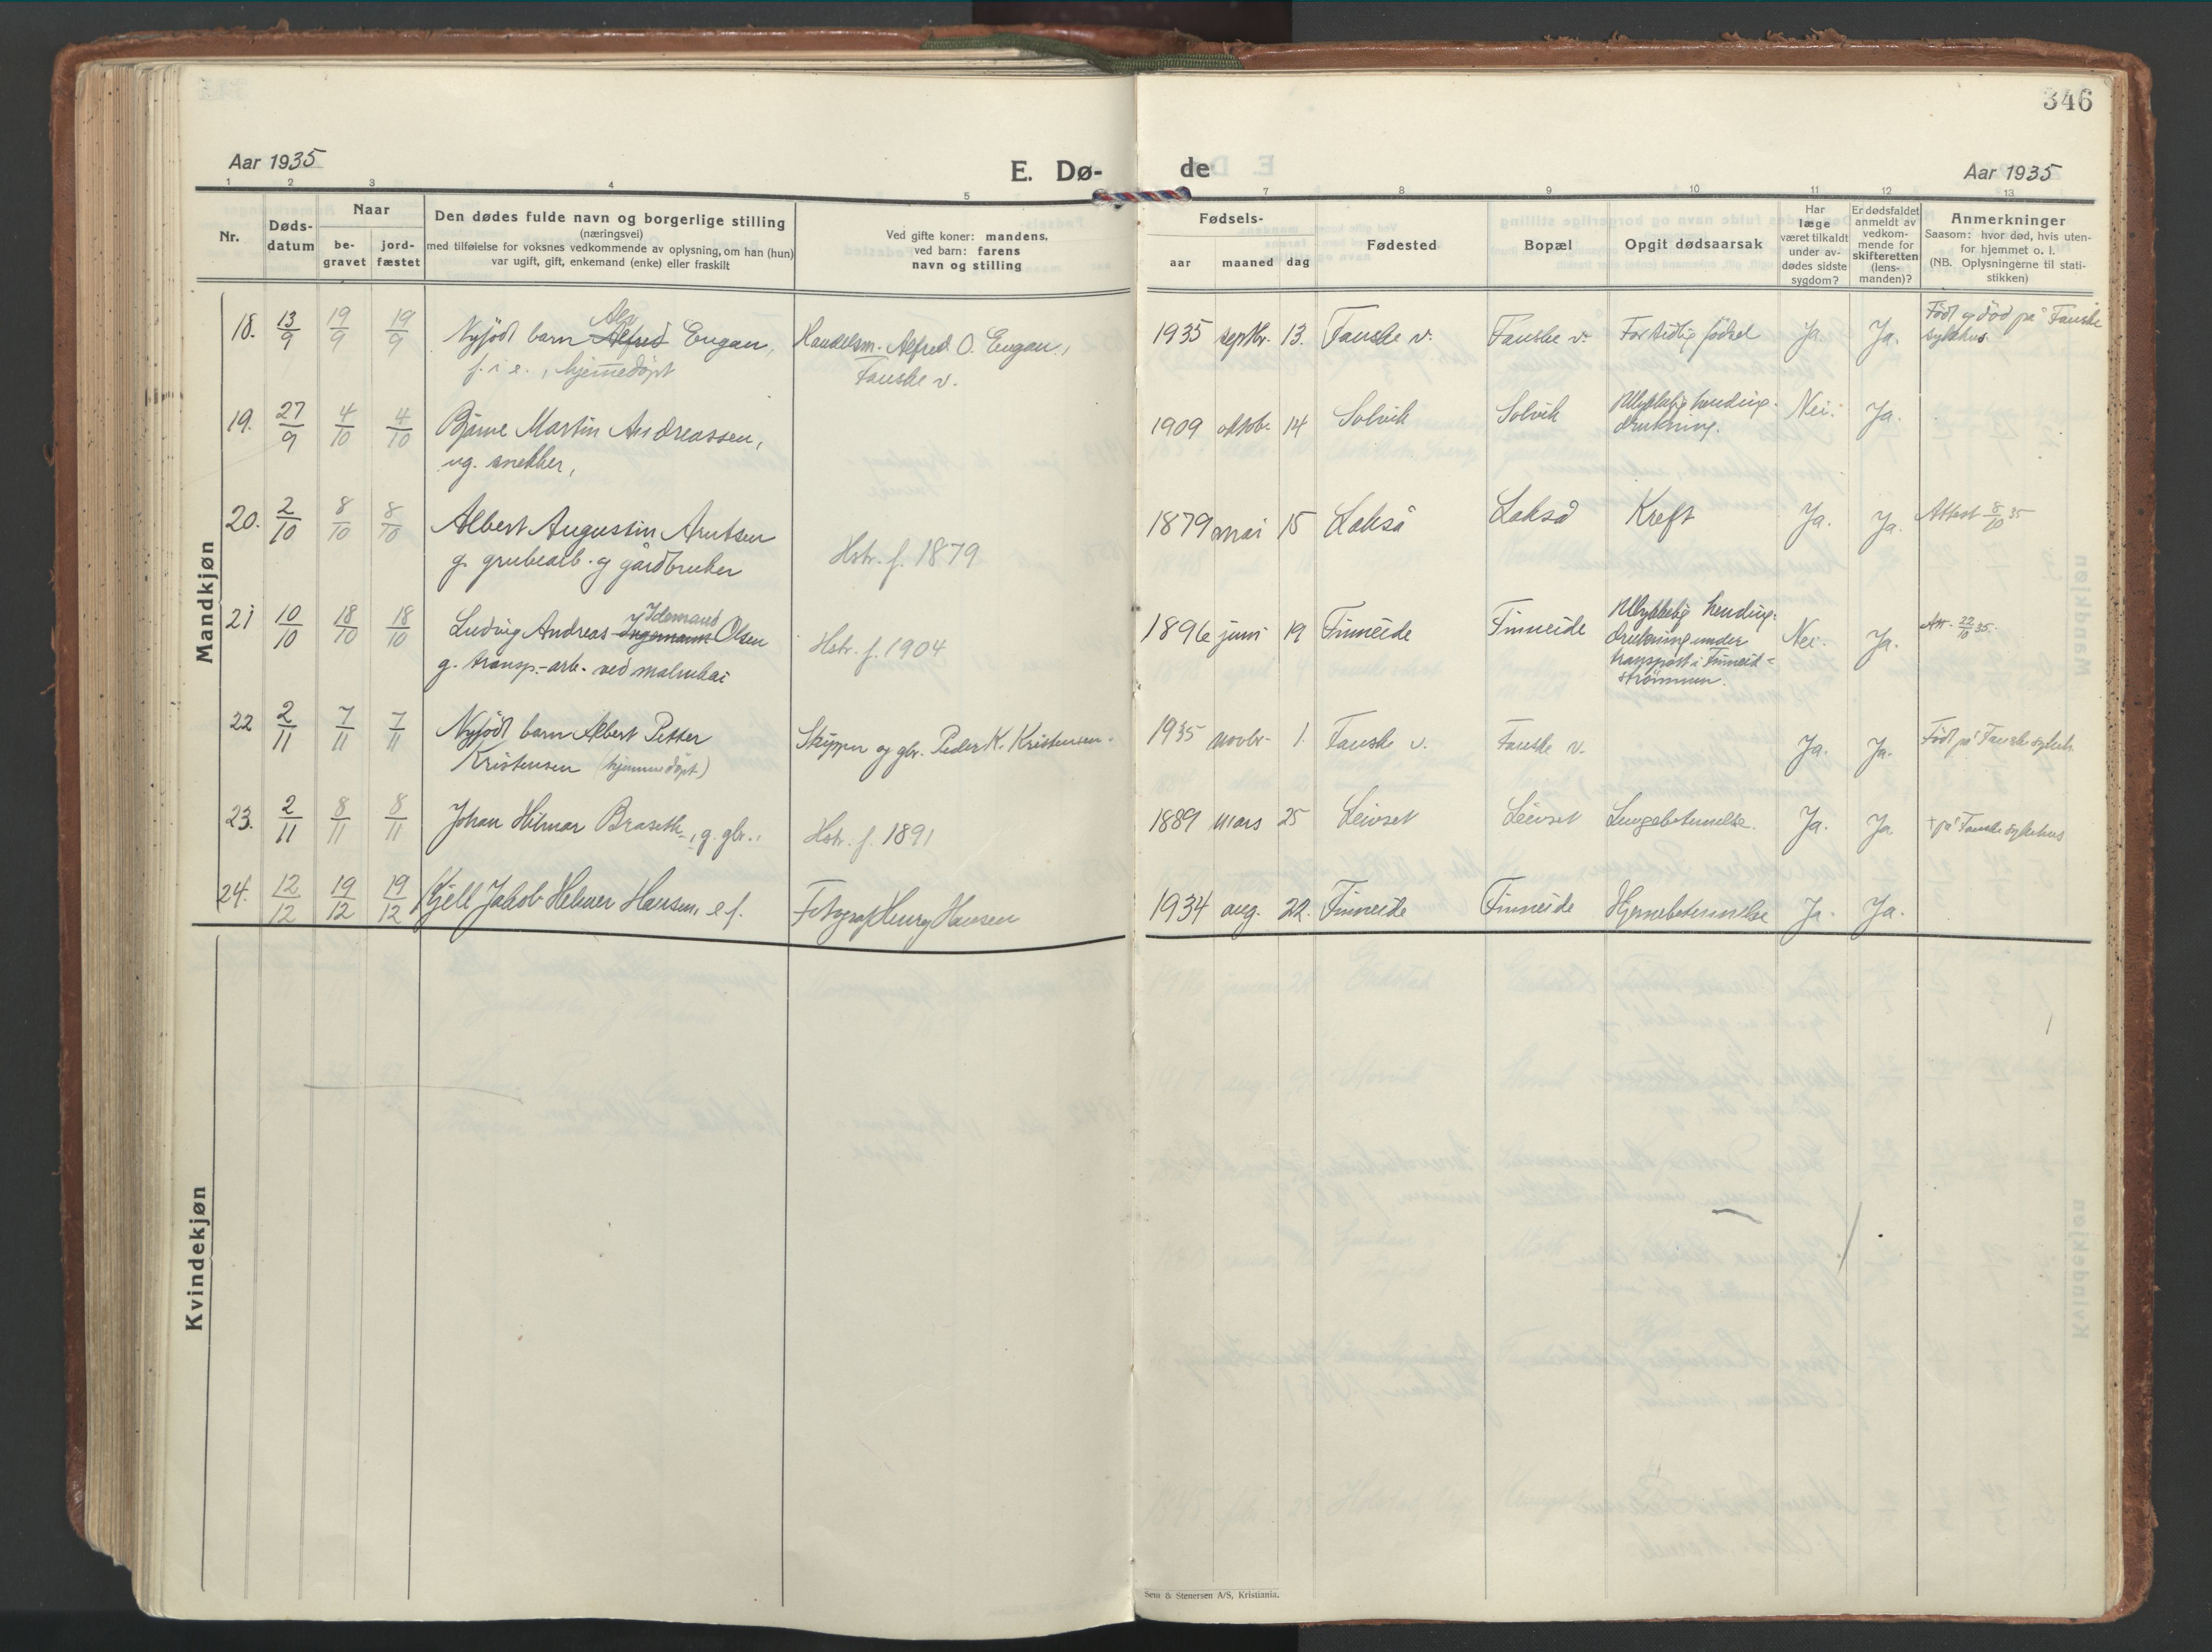 346
Aar 1935
E. Dø-
de
Aar 1935
1 2 3 4 5 7 8 9 10 11 12 13
Nr.
Døds-
datum
Naar
be-
gravet
jord-
fæstet
Den dødes fulde navn og borgerlige stilling
(næringsvei)
med tilføielse for voksnes vedkommende av oplysning, om han (hun)
var ugift, gift, enkemand (enke) eller fraskilt
Ved gifte koner: mandens,
ved barn: farens
navn og stilling
Fødsels-
aar maaned dag
Fødested
Bopæl
Opgit dødsaarsak
Har
læge
været tilkaldt
under av-
dødes sidste
sygdom?
Er dødsfaldet
anmeldt av
vedkom-
mende for
skifteretten
(lens-
manden)?
Anmerkninger
Saasom: hvor død, hvis uten-
for hjemmet o. l.
(NB. Oplysningerne til stati-
stikken)
Mandkjøn
18. 13/9 19/9 19/9 Nyfödt barn Alfred Engan, Handelsm. Alfred O. Engan, 1935 septbr. 13. Fauske v. Fauske v. For tidlig födsel Ja. Ja. Född og död på Fauske
f. i e., hjemmedöpt Fauske v. sykehus.
19. 27/9 4/10 4/10 Bjarne Martin Andreassen, 1909 oktob. 14 Solvik Solvik Ulykkelig hending. Nei. Ja.
ug. snekker, drukning.
20. 2/10 8/10 8/10 Albert Augustin Arntsen Hstr. f. 1879 1879 mai 15 Lakså Lakså Kreft Ja. Ja. Attest 8/10 35
g. grubearb. og gårdbruker
21 10/10 18/10 18/10 Ludvig Andreas Ingemann Idemand Olsen Hstr. f. 1904 1896 juni 19 Finneide Finneide Ulykkelig hending: Nei. Ja. Att. 22/10 35.
g. transp.-arb. ved malmkai drukning under
transport i Finneid-
strömmen.
22 2/11 7/11 7/11 Nyfödt barn Albert Petter Skipper og gbr. Peder K. Kristensen. 1935 novbr. 1. Fauske v. Fauske v. Ja. Ja. Född på Fauske sykeh.
Kristensen (hjemmedöpt)
23. 2/11 8/11 8/11 Johan Hilmar Braseth, g. gbr., Hstr. f. 1891 1889 mars 25 Leivset Leivset Lungebetennelse. Ja. Ja + på Fauske sykehus
24. 12/12 19/12 19/12 Kjell Jakob Helmer Hansen, e f. Fotograf Henry Hansen 1934 aug. 22. Finneide Finneide Hjernebetennelse Ja. Ja.
Kvindekjøn
Sem & Stenersen A/S, Kristiania.